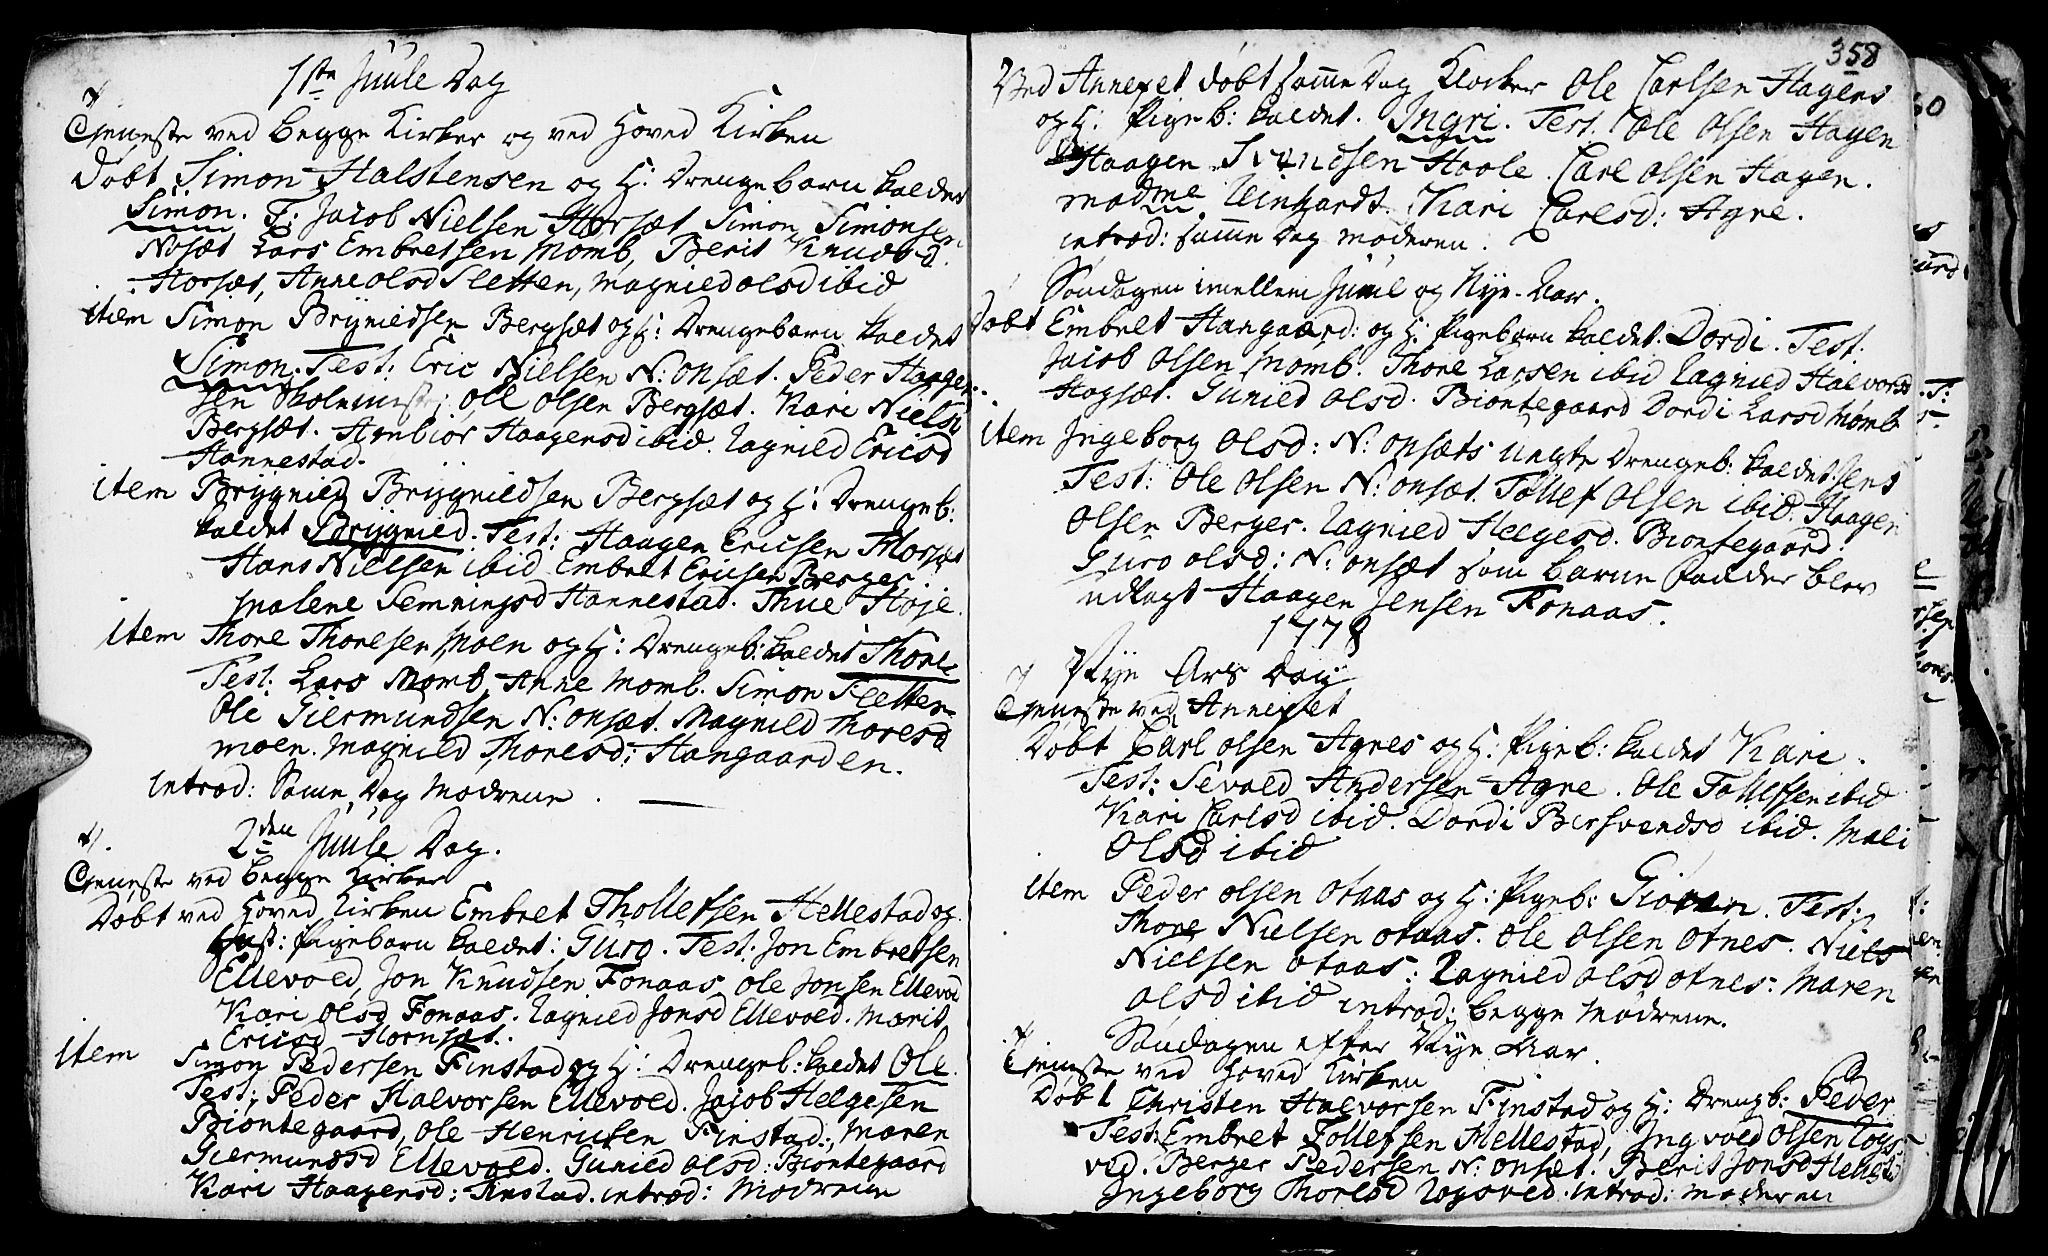 1ste Juule Dag
Tieneste ved begge Kirker og ved Hoved Kirken
døbt Simon Halstensen og H: Drengebarn kaldet
Simon. T: Jacob Nielsen Horsæt Simon Simonsen
Nosæt Lars Embretsen Momb, Berit Knudsd
Horsæt, Anne Olsd Sletten, Magnild Olsd ibid
item Simon Brynildsen Bergsæt og H: Drengebarn kaldet
Simon. Test: Eric Nielsen N: Onsæt. Peder Haagen-
sen Skolemester, Ole Olsen Bergsæt. Kari Nielsd
Bergsæt. Arnbiør Haagensd ibid. Ragnild Ericsd
Hannestad.
item Brygnild Brygnildsen Bergsæt og H: Drengeb:
kaldet Brygnild. Test: Haagen Ericsen Horsæt
Hans Nielsen ibid Embret Ericsen Berger.
Malene Semningsd Hannestad. Thue Høje.
item Thore Thoresen Moen og H: Drengeb: kaldet Thore
Test. Lars Momb Anne Momb. Simon Sletten
Ole Giermundsen N: Onsæt. Magnild Thoresd
moen. Magnild Thoresd: Hangaarden.
introd: Samme Dag Mødrene.
2den Juule Dag.
Tieneste ved begge Kirker
Døbt ved Hoved Kirken Embret Thollefsen Hellestad og
Hust: Pigebarn kaldet: Guro. Test: Jon Embretsen
Ellevold, Jon Knudsen Fonaas, Ole Jonsen Ellevold
Kari Olsd Fonaas. Ragnild Jonsd Ellevold. Marit
Ericsd Hornsæt.
item Simon Pedersen Finstad og H: Drengeb: kaldet Ole.
Test: Peder Halvorsen Ellevold. Jacob Helgesen
Biøntegaard, Ole Henricksen Finstad:, Maren
Giermundsd Ellevold. Gunild Olsd: Biøntegaard
Kari Haagensd: Finstad. introd: Mødrene
358
Ved Annexet døbt samme Dag Klocker Ole Carlsen Hagens
og H: Pigeb: kaldet. Ingri. Test. Ole Olsen Hagen
Haagen Svendsen Haole. Carl Olsen Hagen.
madme Weinhardt. Kari Carlsd: Agre.
introd: samme Dag moderen.
Søndagen imellem Juul og Nyt-Aar.
Døbt Embret Hangaard: og H: Pigebarn kaldet. Dordi. Test:
Jacob Olsen Momb. Thore Larsen ibid Ragnild Halvorsd
Hogsæt. Gunild Olsd. Biøntegaard Dordi Larsd Momb
item Ingeborg Olsd: N: Onsæts uægte Drengeb: kaldet: Jens
Test: Ole Olsen N: Onsæt. Tollef Olsen ibid. Haagen
Olsen Berger. Ragnild Helgesd. Biøntegaard.
Guro Olsd: N: Onsæt som barne Fadder blev
udlagt Haagen Jensen Fonaas.
1778
Nye Ars Dag
Tieneste ved Annexet
Døbt Carl Olsen Agres og H: Pigeb: kaldet Kari.
Test: Sevold Andersen Agre. Ole Tollefsen ibid
Kari Carlsd ibid. Dordi Bersvendsd ibid. Mali
Olsd ibid
item Peder Olsen Otaas og H: Pigeb: Giøren. Test:
Thore Nielsen Otaas. Ole Olsen Otnes. Niels
Nielsen Otaas: Ragnild Olsd Otnes: Maren
Olsd ibid introd: begge Mødrene.
Søndagen efter Nye Aar.
Tieneste ved Hoved Kirken
Døbt Christen Halvorsen Finstad og H: Drengb: Peder
Test: Embret Tollefsen Hellestad, Ingvold Olsen Rogs-
ved. Berger Pedersen N: Onsæt. Berit Jonsd Hellestad
Ingeborg Thorlsd Rogsved. introd: moderen